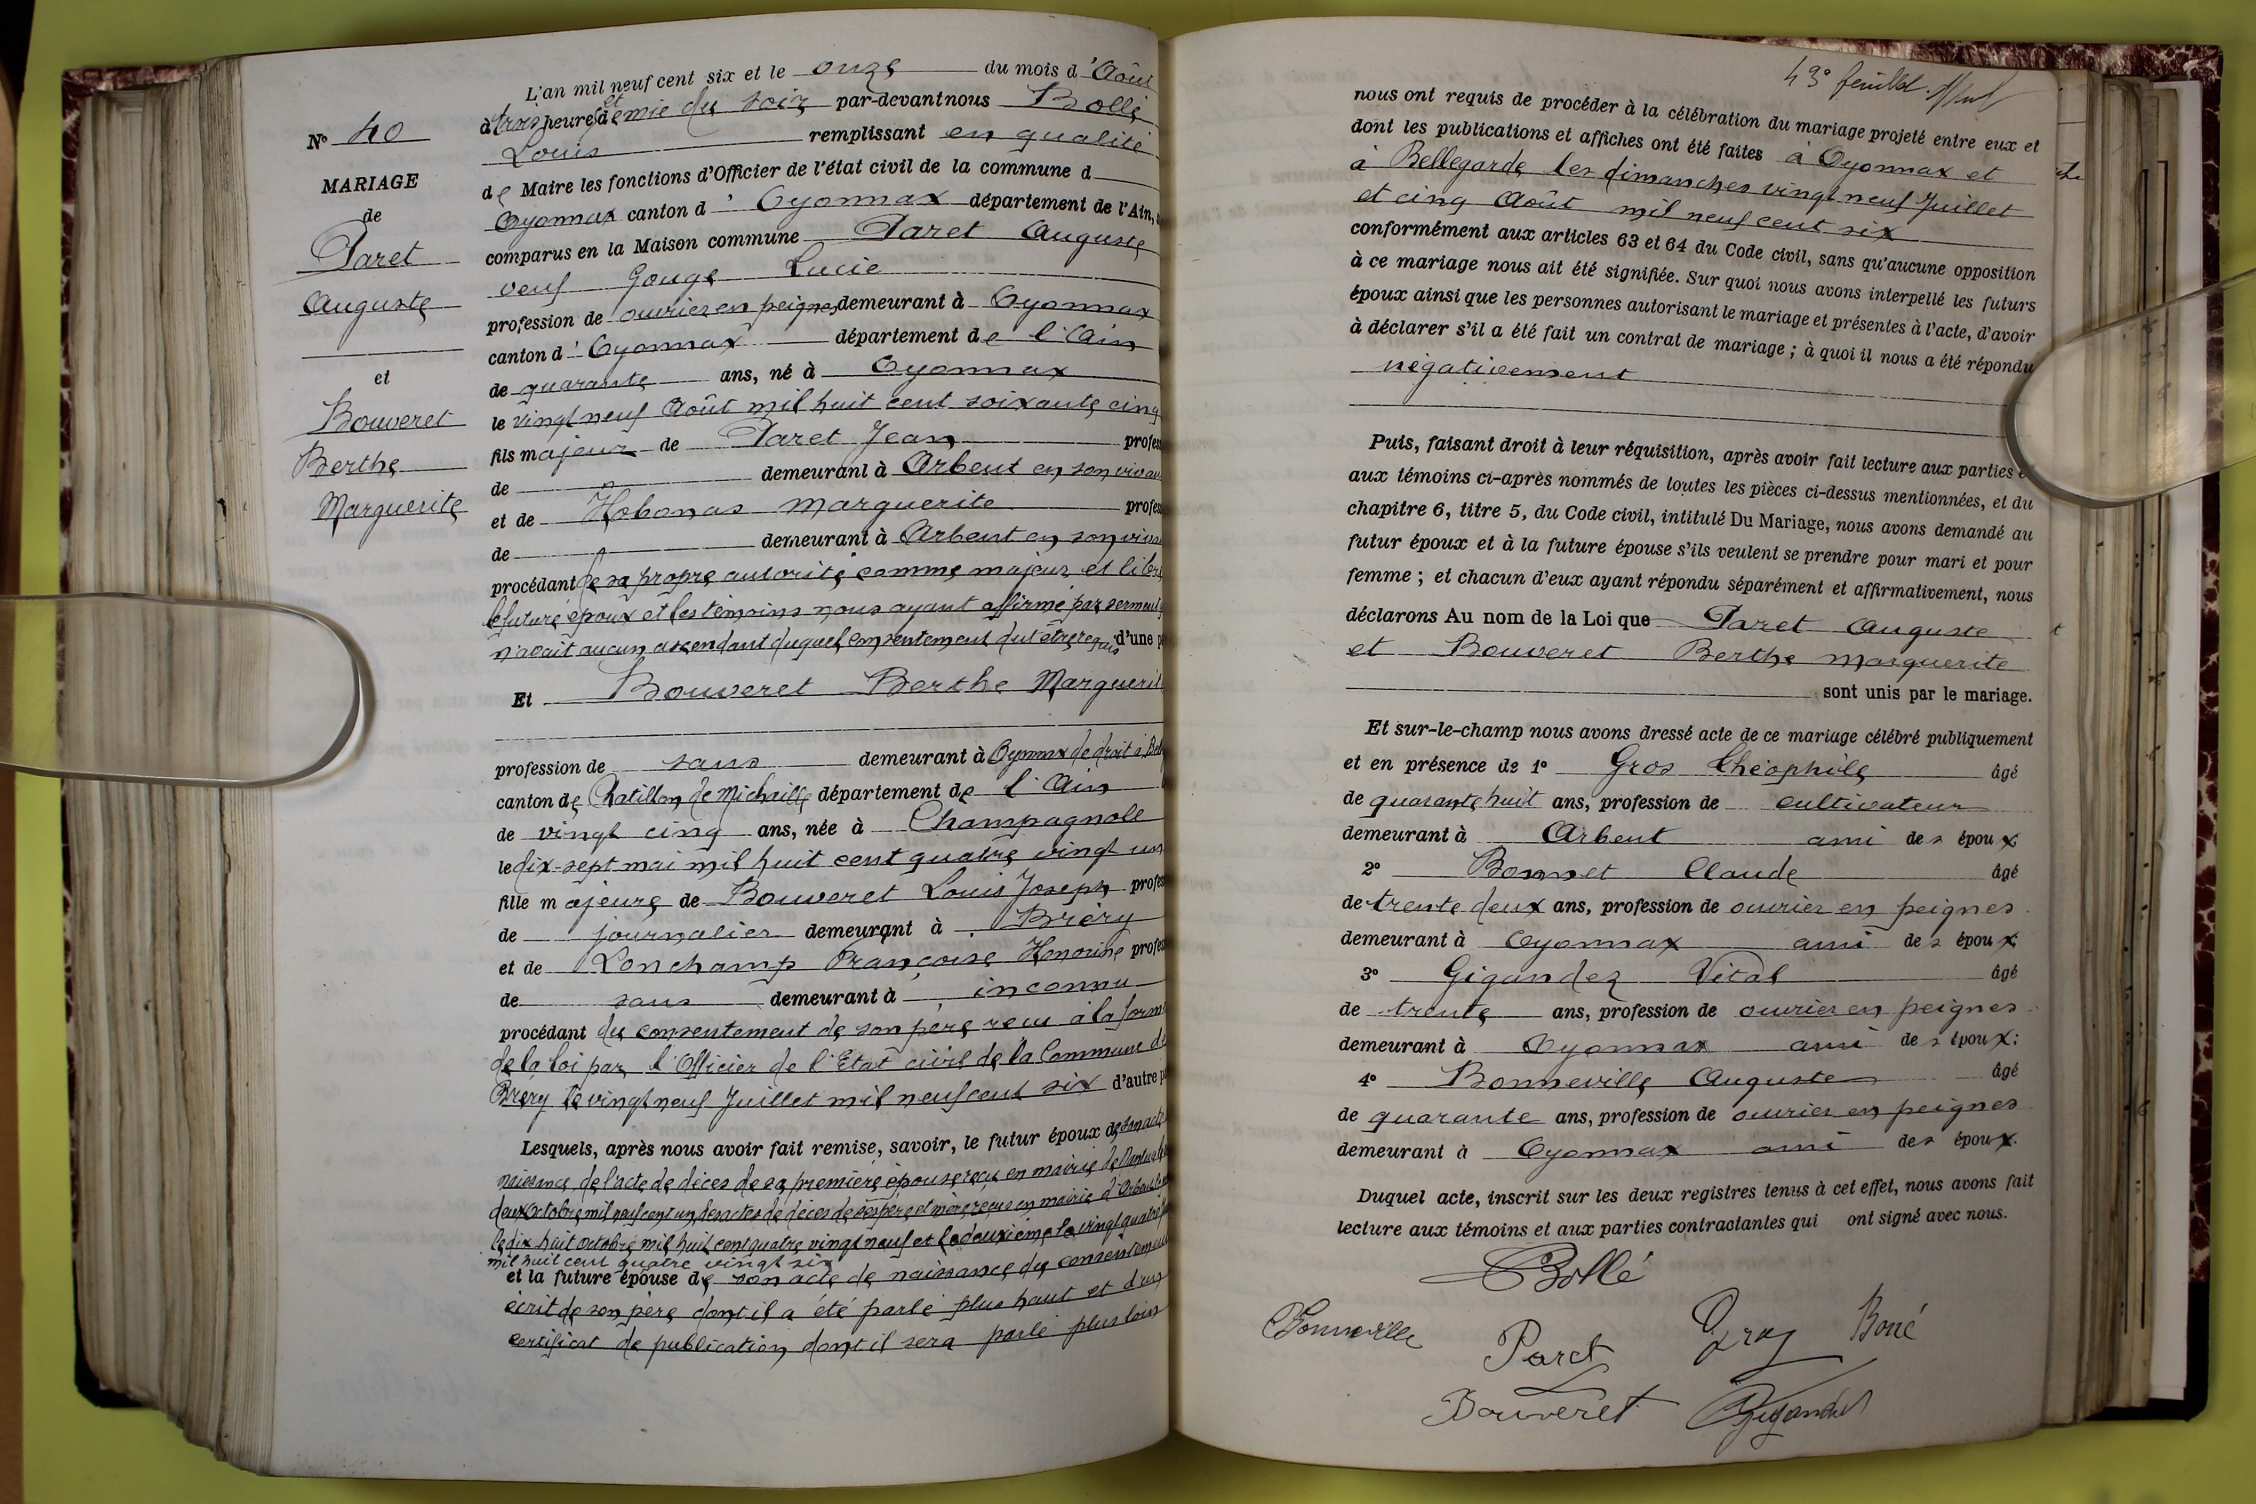 L'an mil neuf cent six et le onze du mois d'Août
à trois heures et demie du soir par-devant nous Bollé
Louis remplissant en qualité
de Maire les fonctions d'Officier de l'état civil de la commune d
Oyonnax canton d' Oyonnax département de l'Ain,
comparus en la Maison commune Paret Auguste
veuf Gouge Lucie
profession de ouvrier en peignes demeurant à Oyonnax
canton d' Oyonnax département de l'Ain
de quarante ans, né à Oyonnax
le vingt neuf Août mil huit cent soixante cinq
fils majeur de Paret Jean profes
de demeurant à Arbent en son vivan
et de Hobonas Marguerite profes
de demeurant à Arbent en son viva
procédant de sa propre autorité comme majeur et libre
le futur époux et les témoins nous ayant affirmé par serment
n'avait aucun ascendant duquel consentement dut être requis d'une p
Et Bouveret Berthe Marguerit
profession de sans demeurant à Oyonnax de droit à Bel
canton de Chatillon de Michaille département de l'Ain
de vingt cinq ans, née à Champagnole
le dix-sept mai mil huit cent quatre vingt un
fille majeure de Bouveret Louis Joseph profes
de journalier demeurant à Bréry
et de Lonchamp Françoise Honorine profes
de sans demeurant à inconnu
procédant du consentement de son père reçu à la forme
de la loi par l'Officier de l'Etat civil de la Commune de
Bréry le vingt neuf Juillet mil neuf cent six d'autre p
Lesquels, après nous avoir fait remise, savoir, le futur époux de son acte
naissance de l'acte de décès de sa première épouse reçu en mairie de
deux Octobre mil neuf cent un des actes de décès de son père et mère reçus en mairie d'Arbent
le dix huit octobre mil huit cent quatre vingt neuf et le deuxième le vingt quatre
mil huit cent quatre vingt six
et la future épouse de son acte de naissance du consentement
écrit de son père dont il a été parlé plus haut et d'un
certificat de publication dont il sera parlé plus loin
N° 40
MARIAGE
de
Paret
Auguste
et
Bouveret
Berthe
Marguerite
43e feuillet
nous ont requis de procéder à la célébration du mariage projeté entre eux et
dont les publications et affiches ont été faites à Oyonnax et
à Bellegarde les dimanches vingt neuf Juillet
et cinq Août mil neuf cent six
conformément aux articles 63 et 64 du Code civil, sans qu'aucune opposition
à ce mariage nous ait été signifiée. Sur quoi nous avons interpellé les futurs
époux ainsi que les personnes autorisant le mariage et présentes à l'acte, d'avoir
à déclarer s'il a été fait un contrat de mariage ; à quoi il nous a été répondu
négativement
Puis, faisant droit à leur réquisition, après avoir fait lecture aux parties
aux témoins ci-après nommés de toutes les pièces ci-dessus mentionnées, et du
chapitre 6, titre 5, du Code civil, intitulé Du Mariage, nous avons demandé au
futur époux et à la future épouse s'ils veulent se prendre pour mari et pour
femme ; et chacun d'eux ayant répondu séparément et affirmativement, nous
déclarons Au nom de la Loi que Paret Auguste
et Bouveret Berthe Marguerite
sont unis par le mariage.
Et sur-le-champ nous avons dressé acte de ce mariage célébré publiquement
et en présence de 1° Gros Théophile âgé
de quarante huit ans, profession de cultivateur
demeurant à Arbent ami des époux
2° Bonnet Claude âgé
de trente deux ans, profession de ouvrier en peignes
demeurant à Oyonnax ami des époux
3° Gigandez Vital âgé
de trente ans, profession de ouvrier en peignes
demeurant à Oyonnax ami des époux;
4° Bonneville Auguste âgé
de quarante ans, profession de ouvrier en peignes
demeurant à Oyonnax ami des époux.
Duquel acte, inscrit sur les deux registres tenus à cet effet, nous avons fait
lecture aux témoins et aux parties contractantes qui ont signé avec nous.
Bollé
Bonneville Paret Gros
Bouveret Gigandet